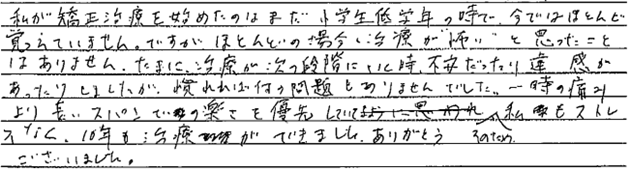 私が矯正治療を始めたのはまだ小学生低学年の時で、今ではほとんど
覚えていません。ですがほとんどの場合、治療が"怖い"と思ったこと
はありません。たまに、治療が次の段階にいく時、不安だったり違 感が
あったりしましたが、慣れれば何の問題もありませんでした。一時の痛み
より長いスパンでの楽さを優先していて そのため 私もストレ
スなく、10年も治療ができました。ありがとう
ございました。